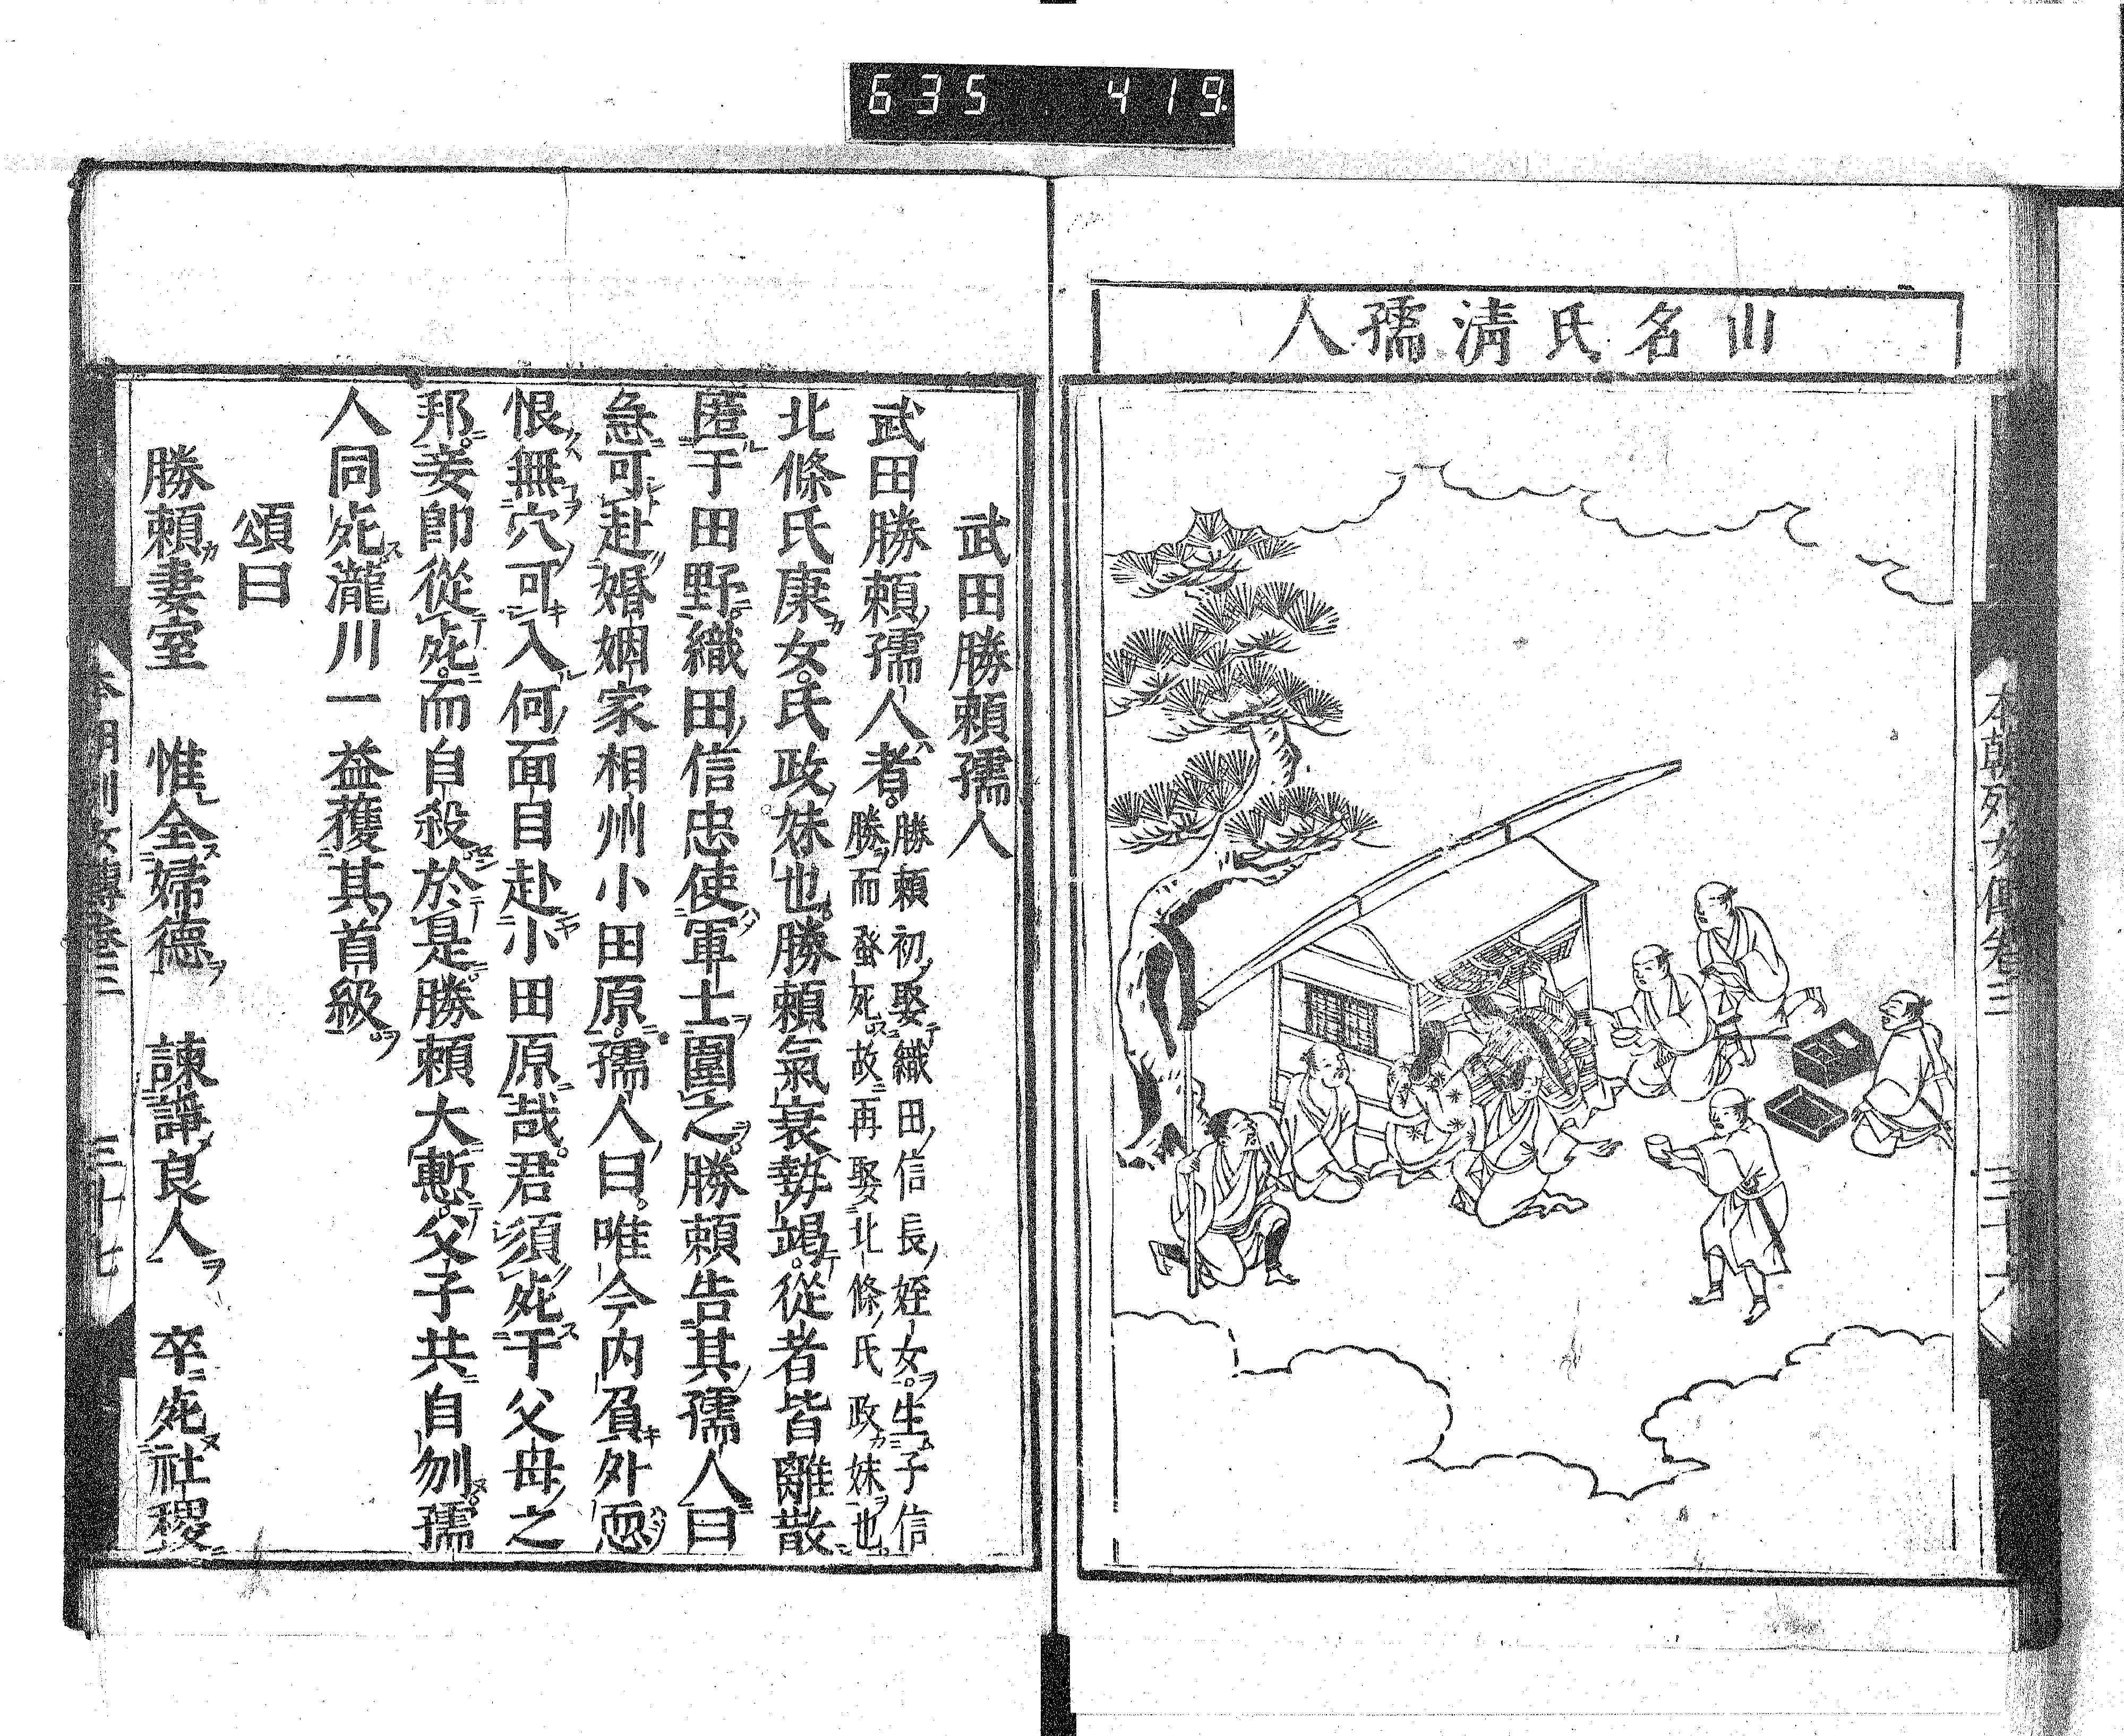 635 419
山名氏清孺人
本朝列女傳卷三 三十六
武田勝頼孺人
武田勝頼孺人者。勝頼初娶織田信長姪女。生子信
勝而蚤死故再娶北條氏政妹也
北條氏康女。氏政妹也。勝頼氣衰勢竭。從者皆離散
匿于田野。織田信忠使軍士圍之。勝頼告其孺人曰
急可赴婚姻家相州小田原。孺人曰。唯今内負外恧
恨無穴可入何面目赴小田原哉。君須死于父母之
邦。妾卽從死。而自殺於是。勝頼大慙。父子共自刎。孺
人同死。瀧川一益獲其首級。
頌曰
勝頼妻室 惟全婦德 諫諍良人 卒死社稷
本朝列女傳卷三 三十七